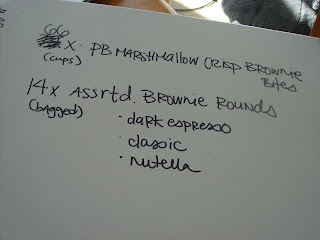 66 x. PB MARSHMALLOW CRISP BROWNIE
(cups) BITES
14x Assrtd. BROWNIE ROUNDS
(bagged)
· dark espresso
· classic
· nutella